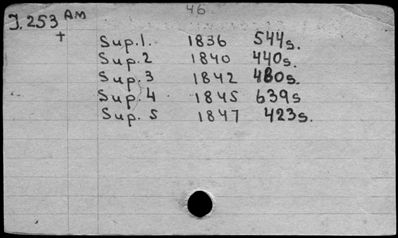 46
J.253 AM
+
Sup.1. 1836 544s.
Sup.2 1840 440s.
Sup.3 1842 480s.
Sup.4 1845 639s
Sup.5 1847 423s.